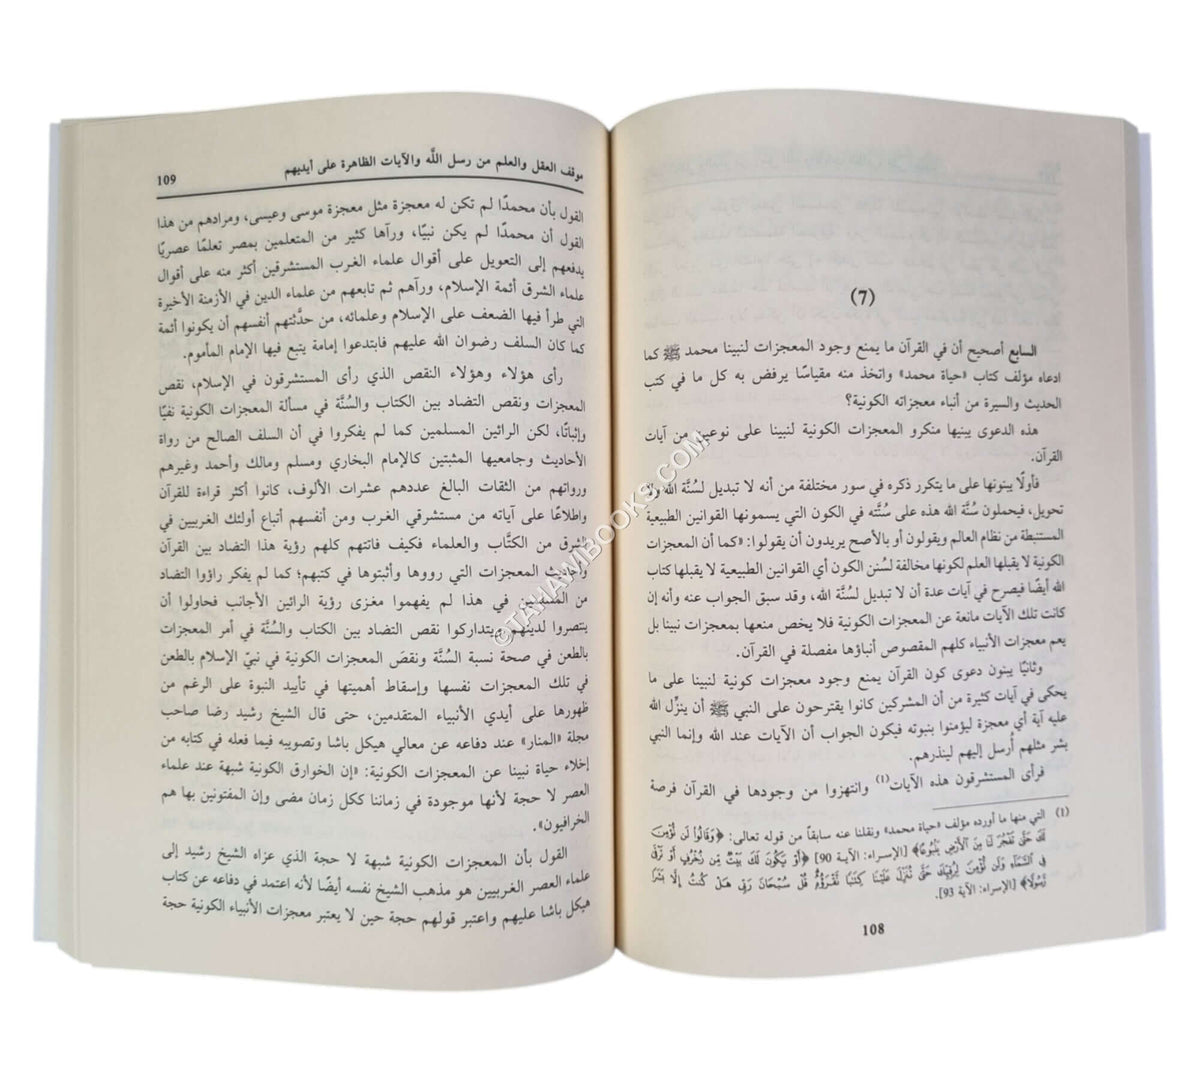 (7)
السابع أصحيح أن في القرآن ما يمنع وجود المعجزات لنبينا محمد ﷺ كما
ادعاه مؤلف كتاب «حياة محمد» واتخذ منه مقياسًا يرفض به كل ما في كتب
الحديث والسيرة من أنباء معجزاته الكونية؟
هذه الدعوى يبنيها منكرو المعجزات الكونية لنبينا على نوعين من آيات
القرآن.
فأولًا يبنونها على ما يتكرر ذكره في سور مختلفة من أنه لا تبديل لسُنَّة الله ولا
تحويل، فيحملون سُنَّة الله هذه على سُنَّته في الكون التي يسمونها القوانين الطبيعية
المستنبطة من نظام العالم ويقولون أو بالأصح يريدون أن يقولوا: «كما أن المعجزات
الكونية لا يقبلها العلم لكونها مخالفة لسُنن الكون أي القوانين الطبيعية لا يقبلها كتاب
الله أيضًا فيصرح في آيات عدة أن لا تبديل لسُنَّة الله، وقد سبق الجواب عنه وأنه إن
كانت تلك الآيات مانعة عن المعجزات الكونية فلا يخص منعها بمعجزات نبينا بل
يعم معجزات الأنبياء كلهم المقصوص أنباؤها مفصلة في القرآن.
وثانيًا يبنون دعوى كون القرآن يمنع وجود معجزات كونية لنبينا على ما
يحكى في آيات كثيرة من أن المشركين كانوا يقترحون على النبي ﷺ أن ينزِّل الله
عليه آية أي معجزة ليؤمنوا بنبوته فيكون الجواب أن الآيات عند الله وإنما النبي
بشر مثلهم أُرسل إليهم لينذرهم.
فرأى المستشرقون هذه الآيات(1) وانتهزوا من وجودها في القرآن فرصة
(1) التي منها ما أورده مؤلف «حياة محمد» ونقلنا عنه سابقاً من قوله تعالى: ﴿وَقَالُوا لَن نُّؤْمِنَ
لَكَ حَتَّى تَفْجُرَ لَنَا مِنَ الْأَرْضِ يَنْبُوعًا﴾ [الإسراء: الآية 90] ﴿أَوْ يَكُونَ لَكَ بَيْتٌ مِّن زُخْرُفٍ أَوْ تَرْقَى
فِي السَّمَاءِ وَلَن نُّؤْمِنَ لِرُقِيِّكَ حَتَّى تُنَزِّلَ عَلَيْنَا كِتَابًا نَّقْرَؤُهُ قُلْ سُبْحَانَ رَبِّي هَلْ كُنتُ إِلَّا بَشَرًا
رَّسُولًا﴾ [الإسراء: الآية 93].
108
موقف العقل والعلم من رسل اللَّه والآيات الظاهرة على أيديهم 109
القول بأن محمدًا لم تكن له معجزة مثل معجزة موسى وعيسى، ومرادهم من هذا
القول أن محمدًا لم يكن نبيًا، ورآها كثير من المتعلمين بمصر تعلمًا عصريًا
يدفعهم إلى التعويل على أقوال علماء الغرب المستشرقين أكثر منه على أقوال
علماء الشرق أئمة الإسلام، ورآهم ثم تابعهم من علماء الدين في الأزمنة الأخيرة
التي طرأ فيها الضعف على الإسلام وعلمائه، من حدَّثتهم أنفسهم أن يكونوا أئمة
كما كان السلف رضوان الله عليهم فابتدعوا إمامة يتبع فيها الإمام المأموم.
رأى هؤلاء وهؤلاء النقص الذي رأى المستشرقون في الإسلام، نقص
المعجزات ونقص التضاد بين الكتاب والسُنَّة في مسألة المعجزات الكونية نفيًا
وإثباتًا، لكن الرائين المسلمين كما لم يفكروا في أن السلف الصالح من رواة
الأحاديث وجامعيها المثبتين كالإمام البخاري ومسلم ومالك وأحمد وغيرهم
ورواتهم من الثقات البالغ عددهم عشرات الألوف، كانوا أكثر قراءة للقرآن
واطلاعًا على آياته من مستشرقي الغرب ومن أنفسهم أتباع أولئك الغربيين في
الشرق من الكتَّاب والعلماء فكيف فاتتهم كلهم رؤية هذا التضاد بين القرآن
وأحاديث المعجزات التي رووها وأثبتوها في كتبهم؛ كما لم يفكر راؤوا التضاد
من المسلمين في هذا لم يفهموا مغزى رؤية الرائين الأجانب فحاولوا أن
ينتصروا لدينهم ويتداركوا نقص التضاد بين الكتاب والسنَّة في أمر المعجزات
بالطعن في صحة نسبة السُنَّة ونقصَ المعجزات الكونية في نبيّ الإسلام بالطعن
في تلك المعجزات نفسها وإسقاط أهميتها في تأييد النبوة على الرغم من
ظهورها على أيدي الأنبياء المتقدمين، حتى قال الشيخ رشيد رضا صاحب
مجلة «المنار» عند دفاعه عن معالي هيكل باشا وتصويبه فيما فعله في كتابه من
إخلاء حياة نبينا عن المعجزات الكونية: «إن الخوارق الكونية شبهة عند علماء
العصر لا حجة لأنها موجودة في زماننا ككل زمان مضى وإن المفتونين بها هم
الخرافيون».
القول بأن المعجزات الكونية شبهة لا حجة الذي عزاه الشيخ رشيد إلى
علماء العصر الغربيين هو مذهب الشيخ نفسه أيضًا لأنه اعتمد في دفاعه عن كتاب
هيكل باشا عليهم واعتبر قولهم حجة حين لا يعتبر معجزات الأنبياء الكونية حجة
©TAHAWIBOOKS.COM